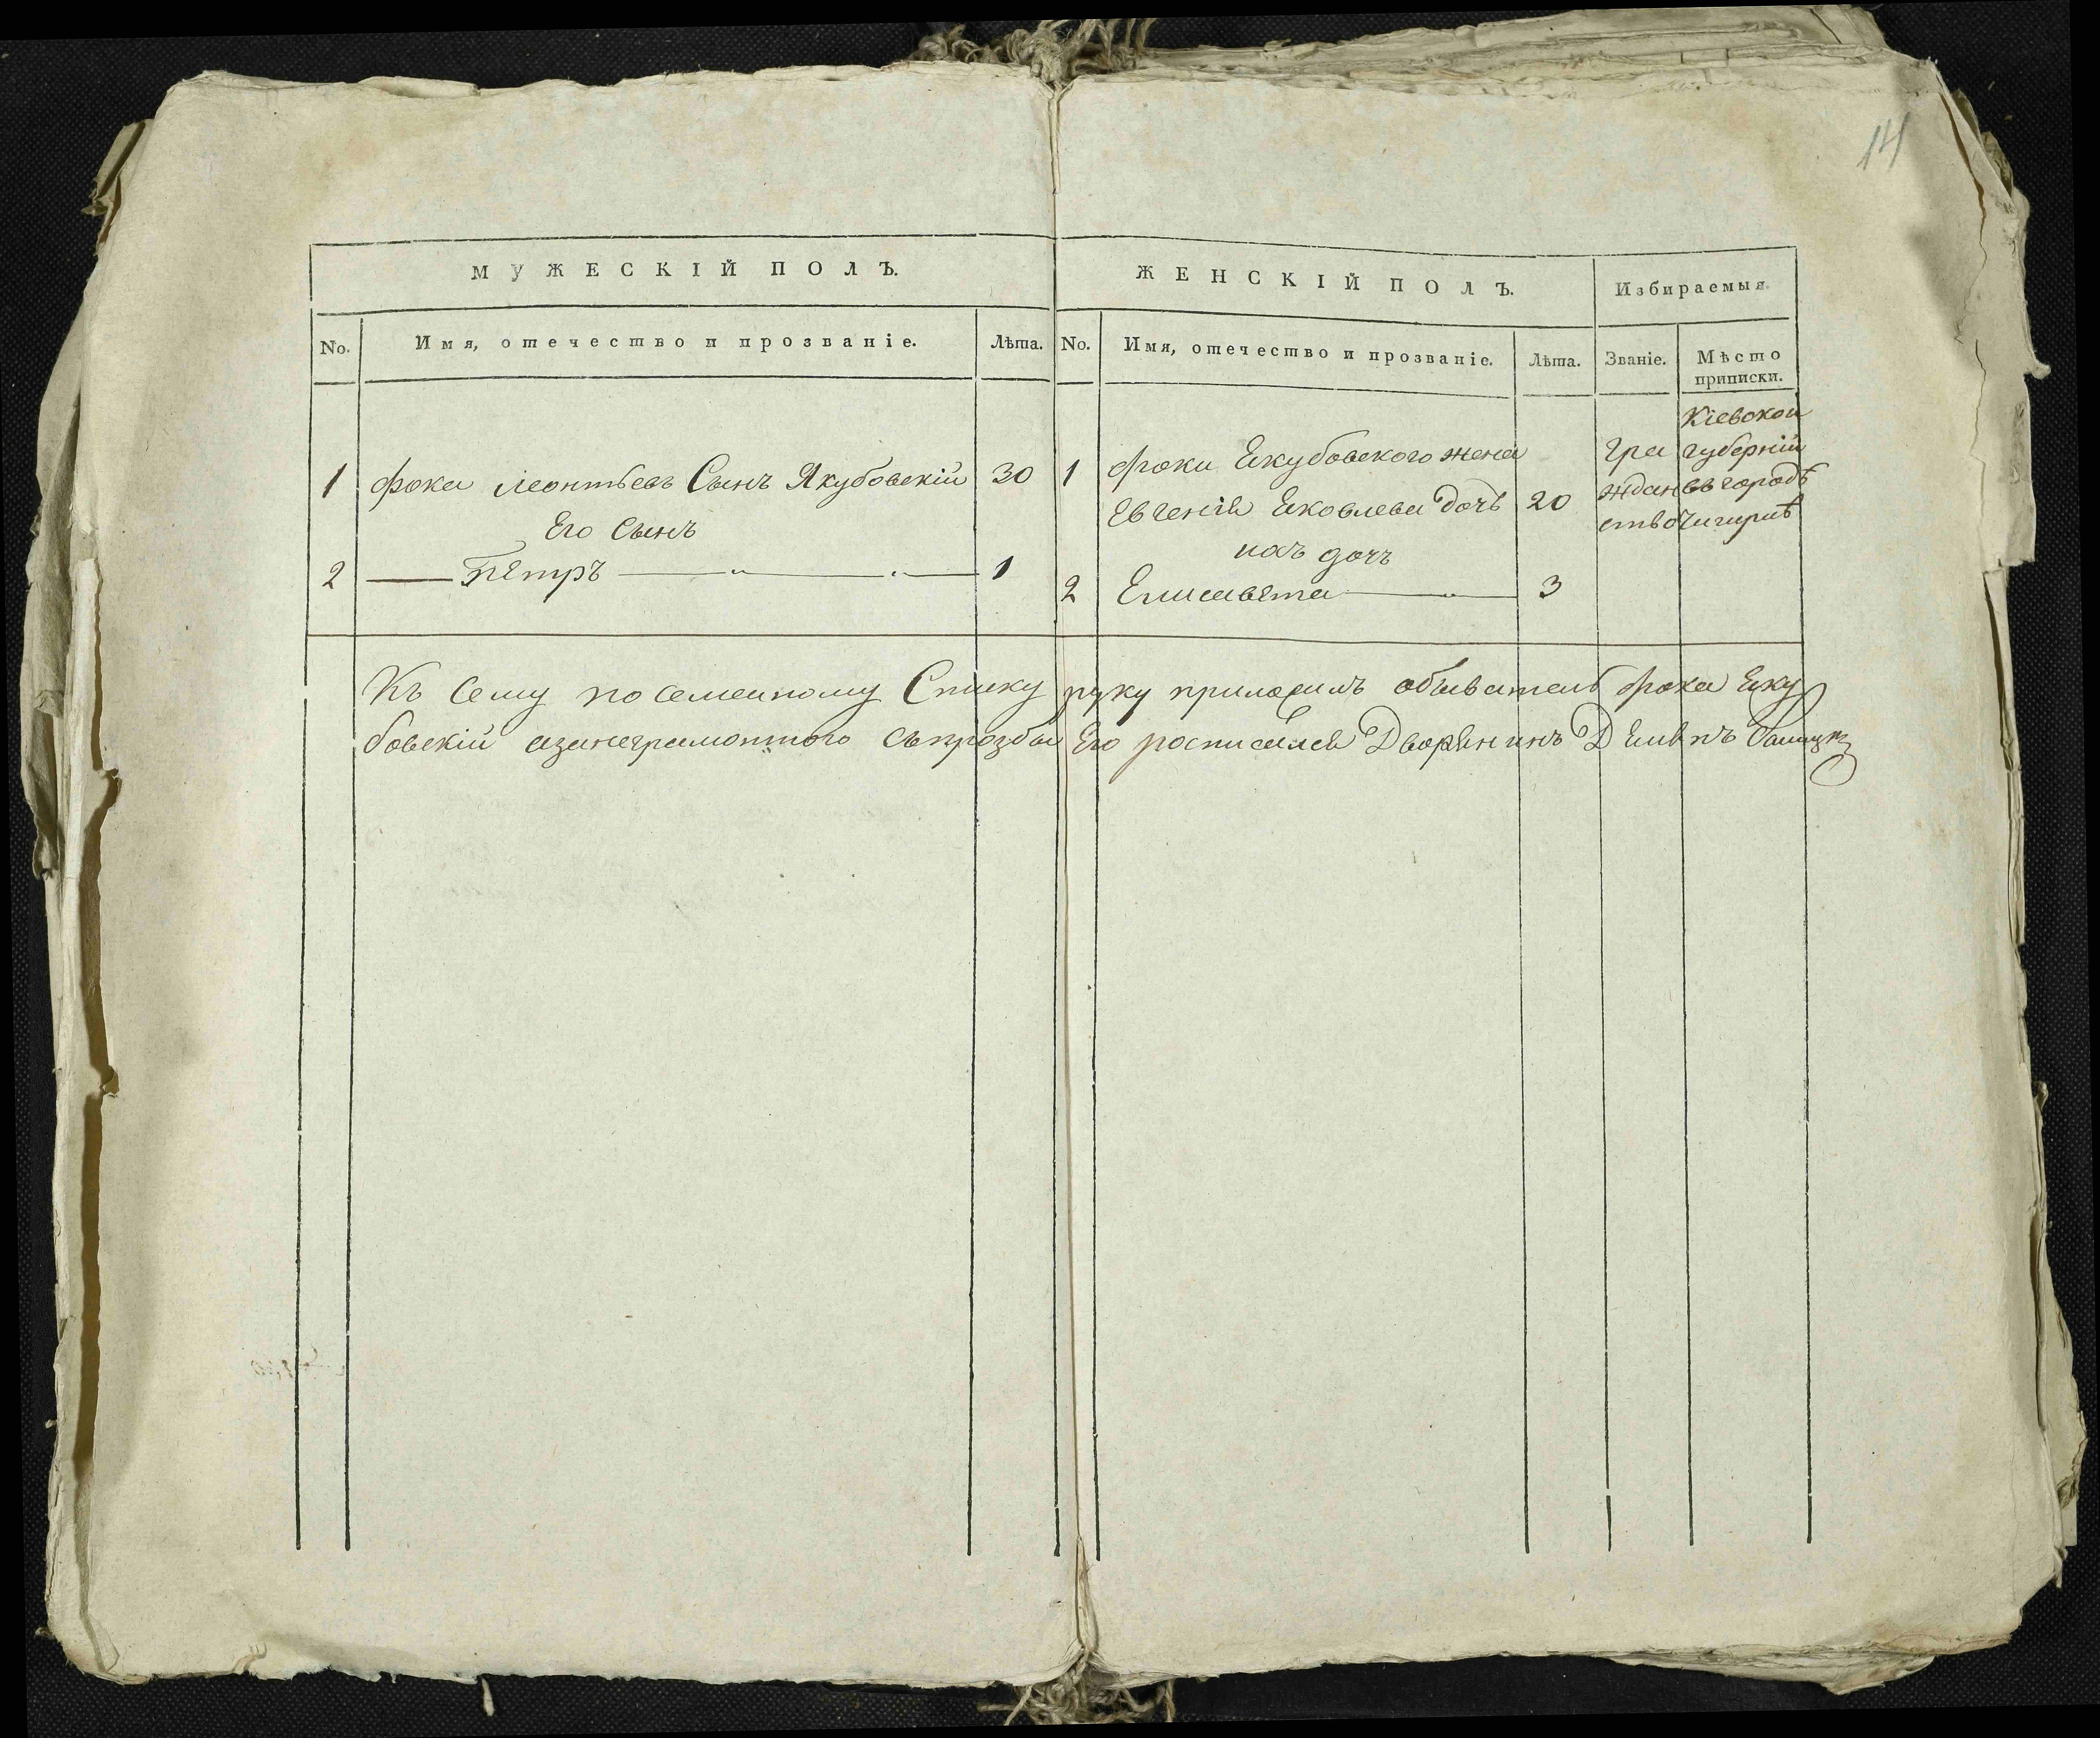 14
МУЖЕСКІЙ ПОЛЪ.
ЖЕНСКІЙ ПОЛЪ.
Избираемыя
No.
Имя, отечество и прозваніе.
Лѣта.
No.
Имя, отечество и прозваніе.
Лѣта.
Званіе.
Мѣсто
приписки.
1 Фока Леонтьевъ Сынъ Якубовскій 30
Его Сынъ
2 Петръ 1
1 Фоки Якубовского жена
Евгенія Яковлева дочь 20
ихъ дочь
2 Елисавета 3
Гра
ждан
ство
Кіевской
губерніи
въ городѣ
Чигиринѣ
Къ Сему посемейному Списку руку приложилъ обыватель Фока Яку
бовскій азанеграмотного съпрозбы Его росписался Дворянинъ